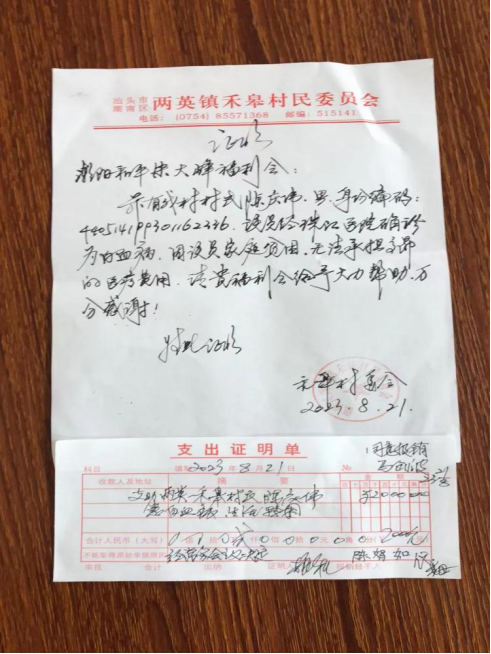 汕头市
潮南区 两英镇禾皋村民委员会
电话：(0754) 85571368 邮编：515141
证明
潮阳和平宋大峰福利会：
兹有我村村民陈庆伟，男，身份编码：
该员经珠江医院确诊
为白血病，因该员家庭贫困，无法承担高昂
的医疗费用，请贵福利会给予大力帮助，万
分感谢！
特此证明
禾皋村委会
2023.8.21.
支出证明单
同意报销
科目 填 2023年8月21日 №
收款人及地址 摘要 金额
支助两英禾皋村民陈庆伟
患白血病 生活困难 ¥200000
合计人民币（大写） 0 1 0 贰仟0佰0拾0元0角0分 2000元
不能取得原始单据原因
审批 会计 出纳 证明人 经手人